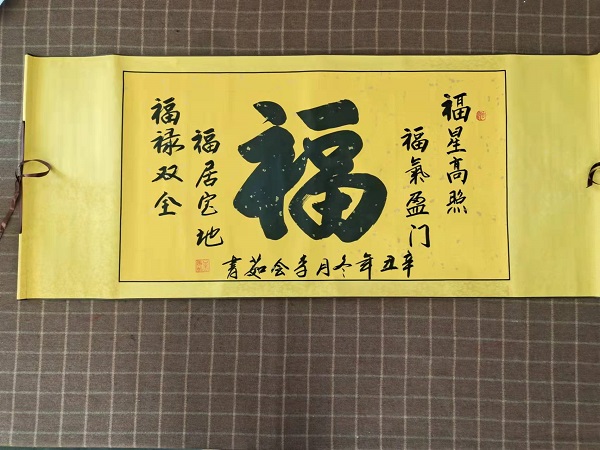 福星高照
福氣盈门
福
福居宝地
福禄双全
辛丑年冬月李会茹書